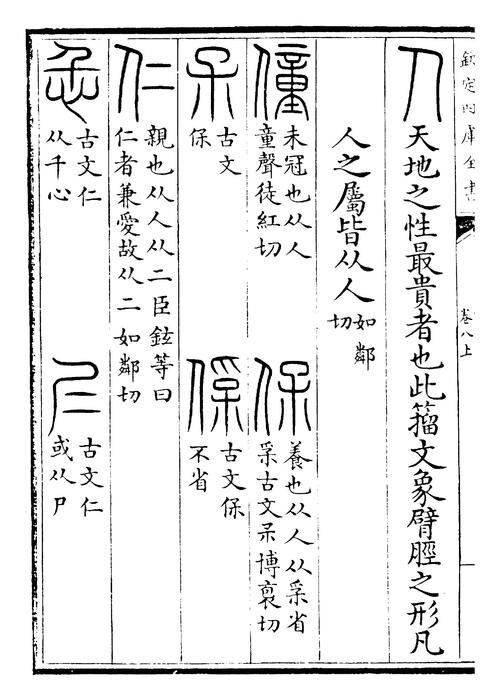 欽定四庫全書
卷八上
人天地之性最貴者也此籀文象臂脛之形凡
人之屬皆从人如鄰切
僮未冠也从人童聲徒紅切
保養也从人从𤓽省𤓽古文孚博裒切
𤓽古文保
㑱古文保不省
仁親也从人从二臣鉉等曰仁者兼愛故从二如鄰切
忎古文仁从千心
𡰥古文仁或从尸